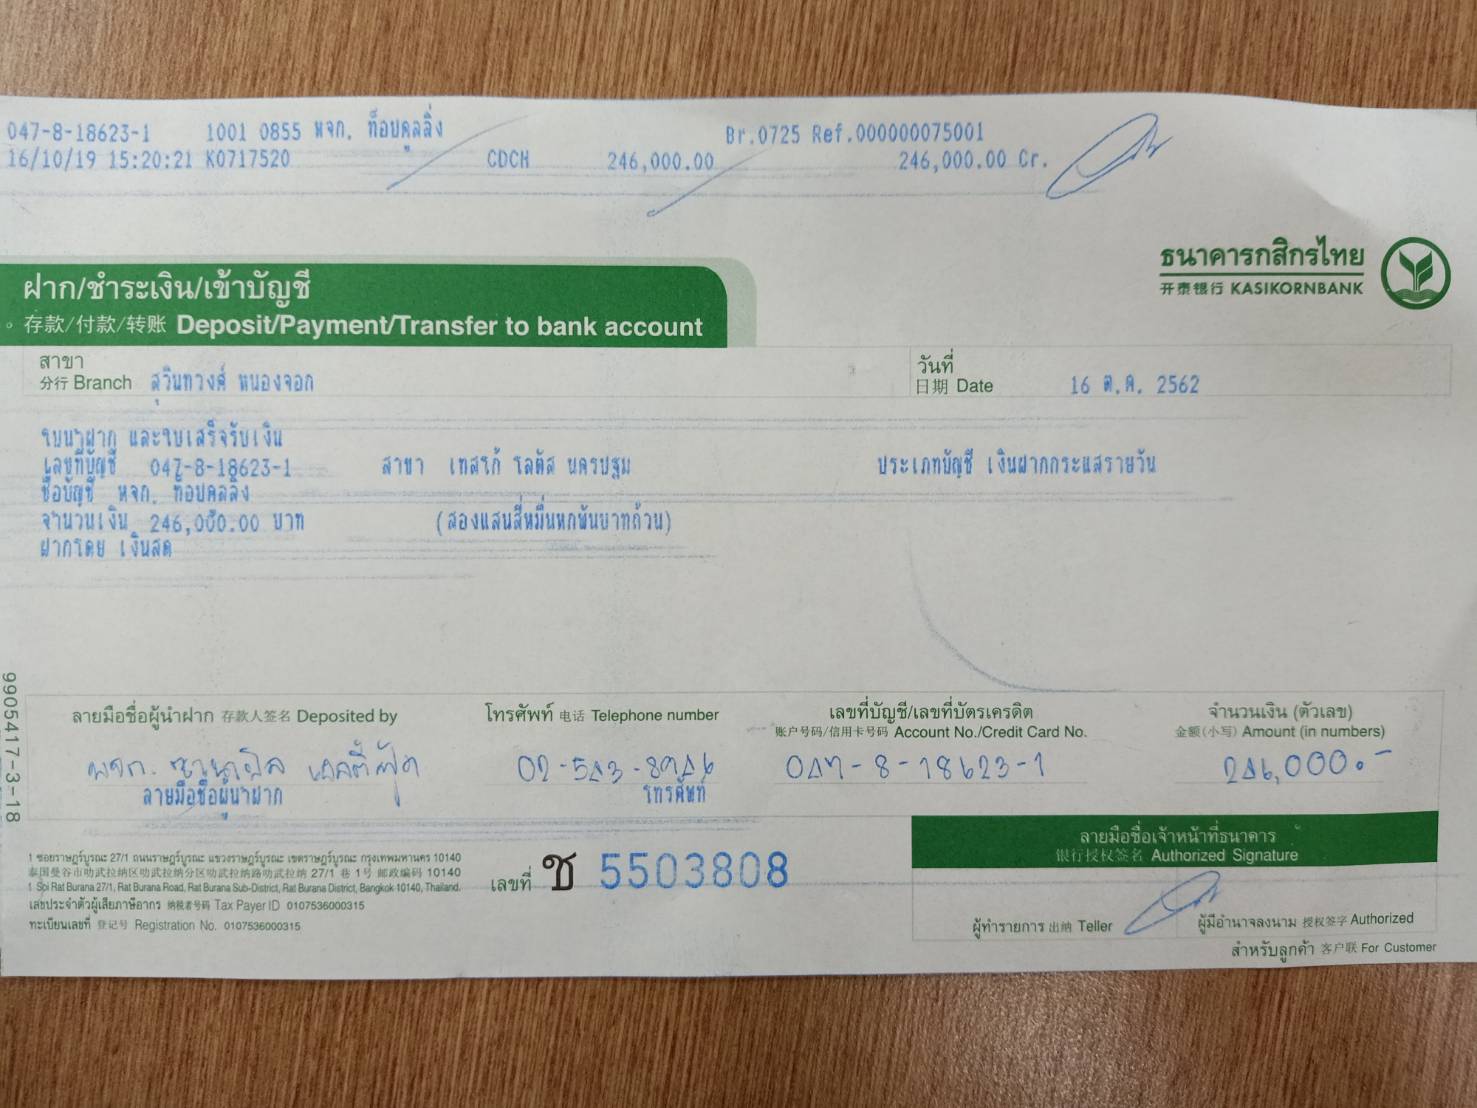 047-8-18623-1 1001 0855 หจก. ท็อปคูลลิ่ง Br.0725 Ref.000000075001
16/10/19 15:20:21 K0717520 CDCH 246,000.00 246,000.00 Cr.
ธนาคารกสิกรไทย
开泰银行 KASIKORNBANK
ฝาก/ชำระเงิน/เข้าบัญชี
存款/付款/转账 Deposit/Payment/Transfer to bank account
สาขา
分行 Branch สุวินทวงศ์ หนองจอก
วันที่
日期 Date 16 ต.ค. 2562
ใบนำฝาก และใบเสร็จรับเงิน
เลขที่บัญชี 047-8-18623-1 สาขา เทสโก้ โลตัส นครปฐม ประเภทบัญชี เงินฝากกระแสรายวัน
ชื่อบัญชี หจก. ท็อปคูลลิ่ง
จำนวนเงิน 246,000.00 บาท (สองแสนสี่หมื่นหกพันบาทถ้วน)
ฝากโดย เงินสด
9905417-3-18
ลายมือชื่อผู้นำฝาก 存款人签名 Deposited by
โทรศัพท์ 电话 Telephone number
เลขที่บัญชี/เลขที่บัตรเครดิต
账户号码/信用卡号码 Account No./Credit Card No.
จำนวนเงิน (ตัวเลข)
金额(小写) Amount (in numbers)
047-8-18623-1
246,000.-
ลายมือชื่อผู้นำฝาก
โทรศัพท์
1 ซอยราษฎร์บูรณะ 27/1 ถนนราษฎร์บูรณะ แขวงราษฎร์บูรณะ เขตราษฎร์บูรณะ กรุงเทพมหานคร 10140
泰国曼谷市叻武拉纳区叻武拉纳分区叻武拉纳路叻武拉纳 27/1 巷 1号 邮政编码 10140
1 Soi Rat Burana 27/1, Rat Burana Road, Rat Burana Sub-District, Rat Burana District, Bangkok 10140, Thailand.
เลขประจำตัวผู้เสียภาษีอากร 纳税者号码 Tax Payer ID 0107536000315
ทะเบียนเลขที่ 登记号 Registration No. 0107536000315
เลขที่ ช 5503808
ลายมือชื่อเจ้าหน้าที่ธนาคาร
银行授权签名 Authorized Signature
ผู้ทำรายการ 出纳 Teller
ผู้มีอำนาจลงนาม 授权签字 Authorized
สำหรับลูกค้า 客户联 For Customer